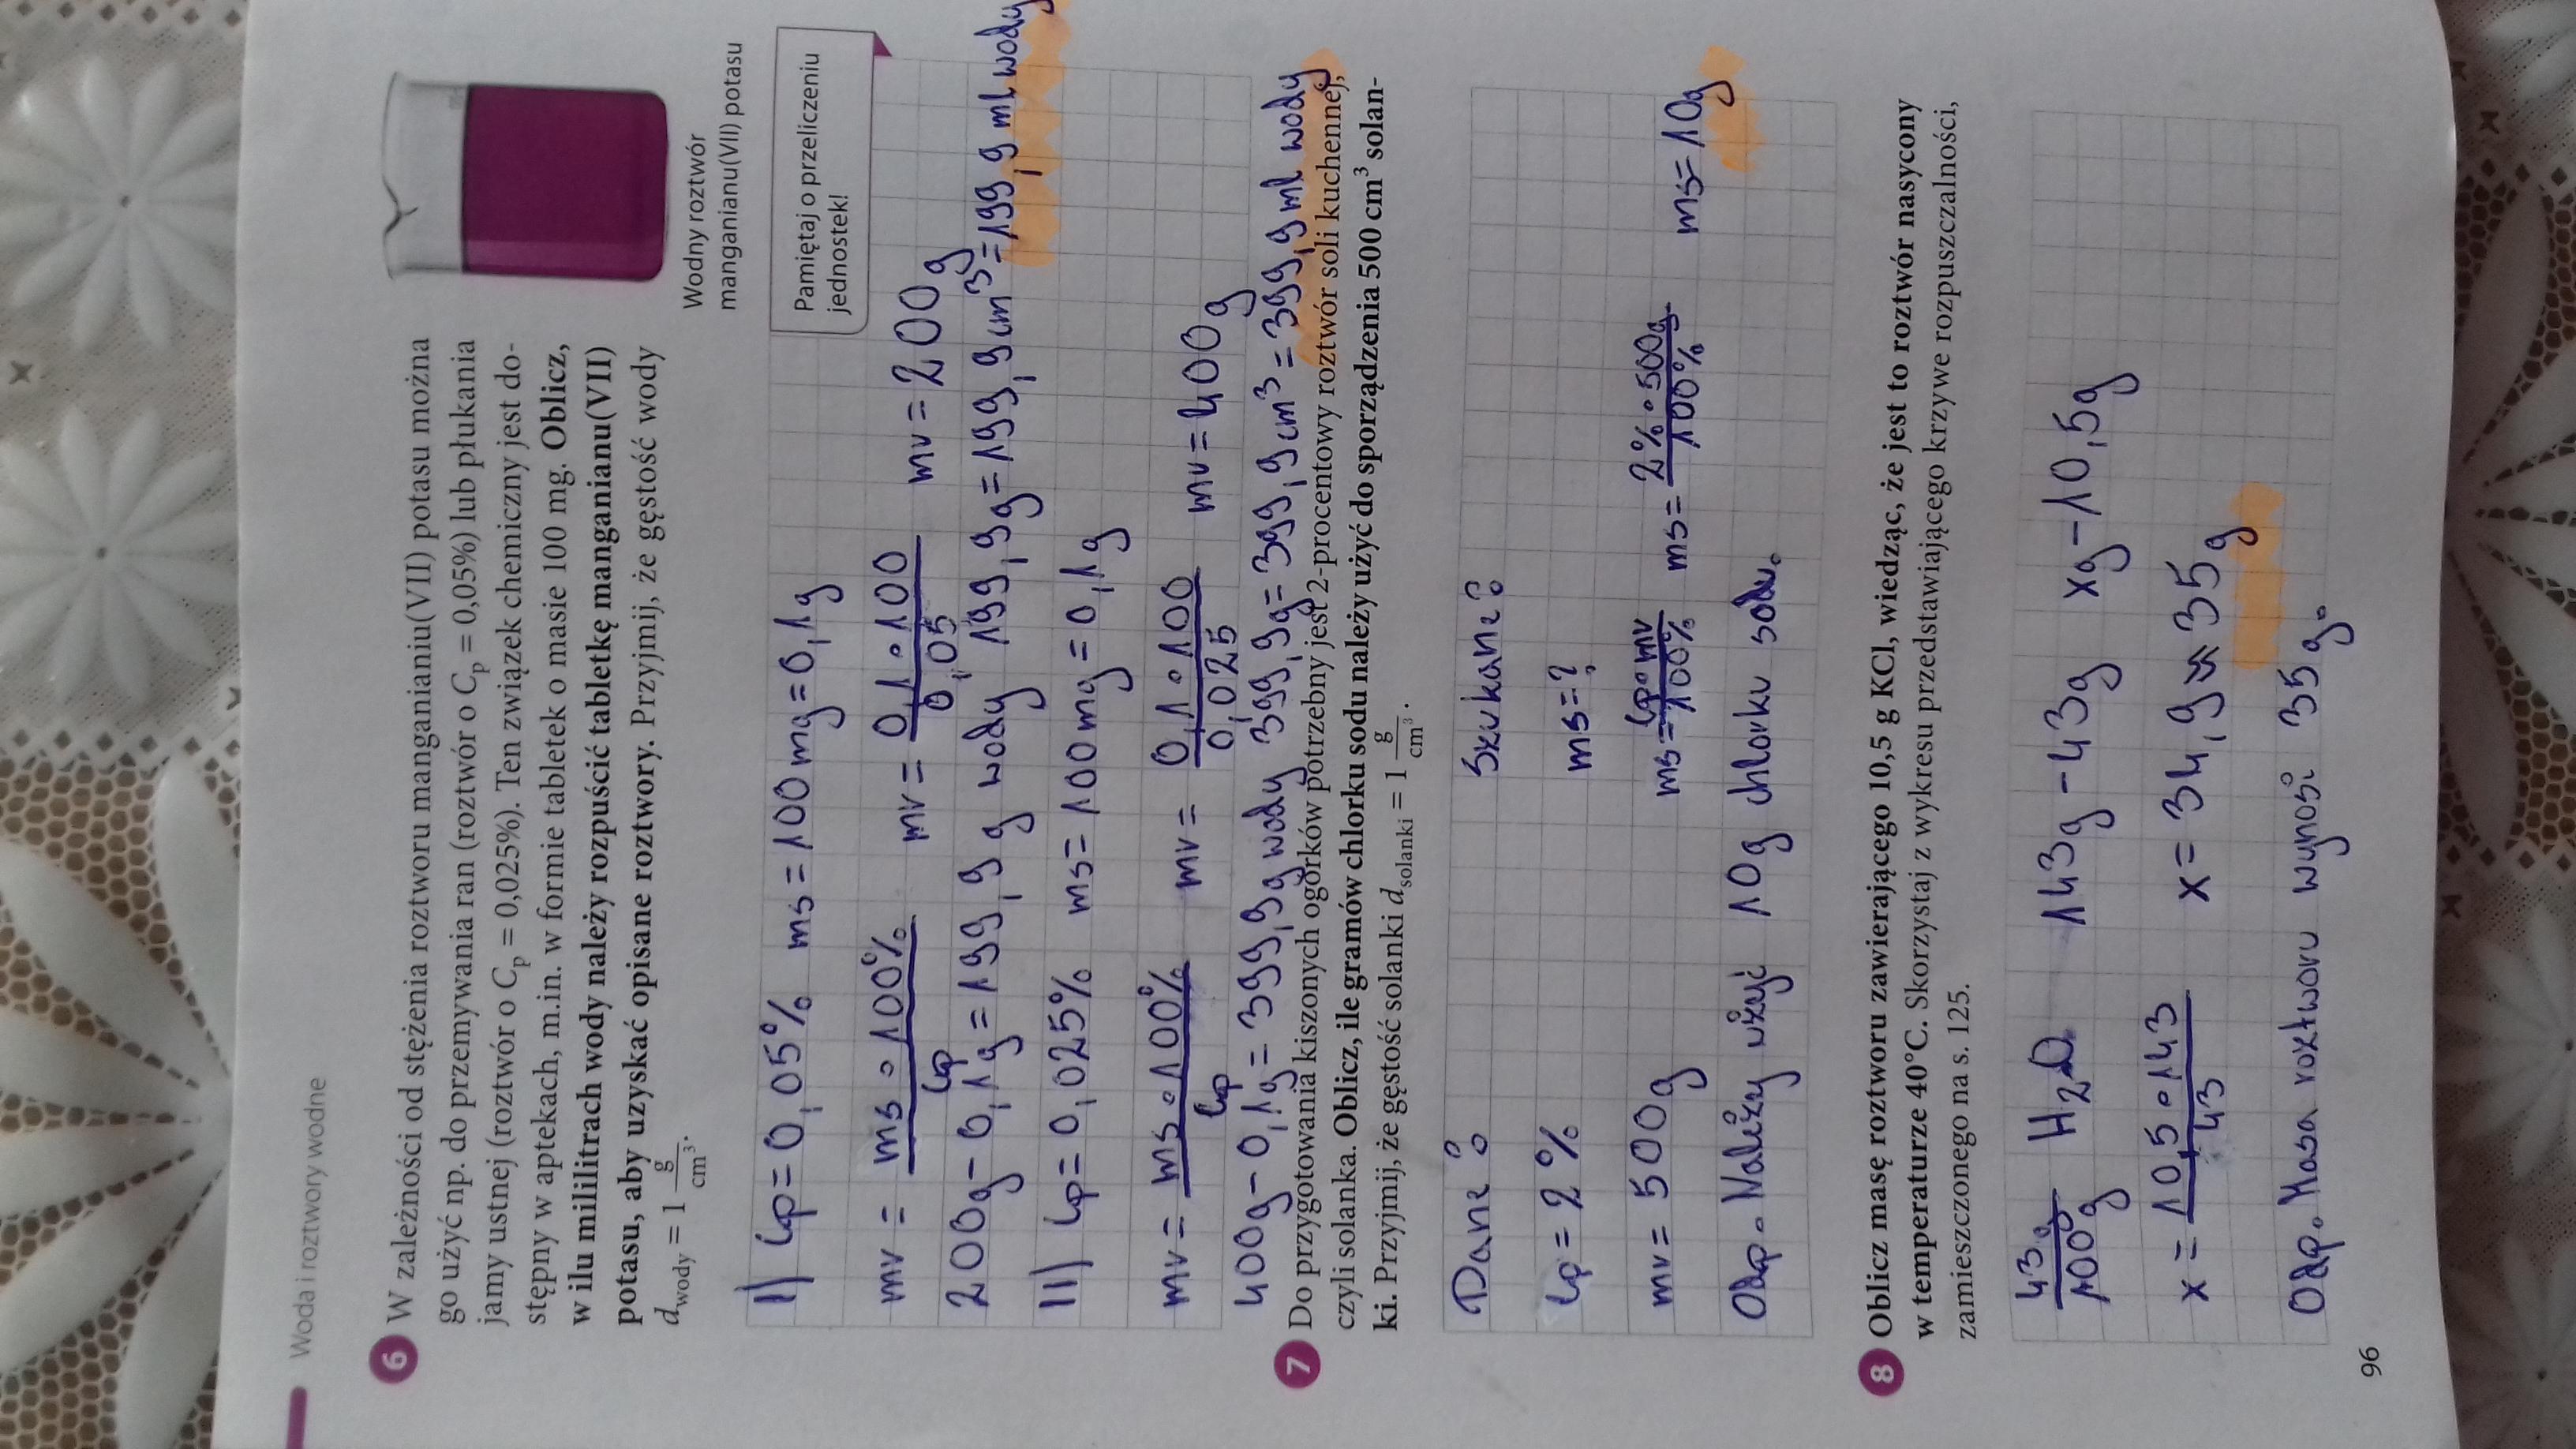 Woda i roztwory wodne
6 W zależności od stężenia roztworu manganianiu(VII) potasu można
go użyć np. do przemywania ran (roztwór o Cp = 0,05%) lub płukania
jamy ustnej (roztwór o Cp = 0,025%). Ten związek chemiczny jest do-
stępny w aptekach, m.in. w formie tabletek o masie 100 mg. Oblicz,
w ilu mililitrach wody należy rozpuścić tabletkę manganianu(VII)
potasu, aby uzyskać opisane roztwory. Przyjmij, że gęstość wody
d wody = 1 g/cm³.
Wodny roztwór
manganianu(VII) potasu
Pamiętaj o przeliczeniu
jednostek!
I) Cp = 0,05% ms = 100mg = 0,1g
mr = ms · 100% / Cp mr = 0,1 · 100 / 0,05 mr = 200g
200g - 0,1g = 199,9 g wody 199,9g = 199,9 cm³ = 199,9 ml wody
II) Cp = 0,025% ms = 100mg = 0,1g
mr = ms · 100% / Cp mr = 0,1 · 100 / 0,025 mr = 400g
400g - 0,1g = 399,9g wody 399,9g = 399,9 cm³ = 399,9 ml wody
7 Do przygotowania kiszonych ogórków potrzebny jest 2-procentowy roztwór soli kuchennej,
czyli solanka. Oblicz, ile gramów chlorku sodu należy użyć do sporządzenia 500 cm³ solan-
ki. Przyjmij, że gęstość solanki d solanki = 1 g/cm³.
Dane: Szukane:
Cp = 2% ms = ?
mr = 500g ms = Cp · mr / 100% ms = 2% · 500g / 100% ms = 10g
Odp. Należy użyć 10g chlorku sodu.
8 Oblicz masę roztworu zawierającego 10,5 g KCl, wiedząc, że jest to roztwór nasycony
w temperaturze 40°C. Skorzystaj z wykresu przedstawiającego krzywe rozpuszczalności,
zamieszczonego na s. 125.
43g / 100g H2O 143g - 43g xg - 10,5g
x = 10,5 · 143 / 43 x = 34,9 ≈ 35g
Odp. Masa roztworu wynosi 35g.
96